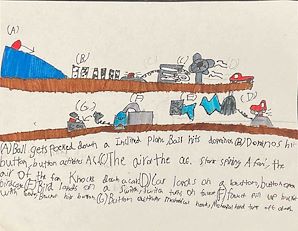 (A)
(B)
(C)
(D)
(G)
(A) Ball gets pecked down a Inclind plane, Ball hits dominos (B) Dominos hit
button, button activates AC (C) The air of the ac. Start spining A fan, the
air of the fan knocks down a car (D) Car lands on a button, button open
birdcage (E) Bird lands on a Switch, Switch turns on faucet (F) faucet fill up bucket
with water, Bucket hit button (G) Button activates mechanical hand, Mechanical hand turn off clock